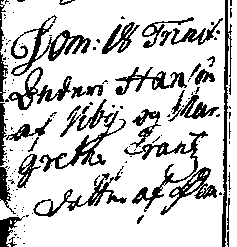 Dom: 18 Trinit:
Anders Hansøn
af Viby og Mar-
grethe Frantz
datter af